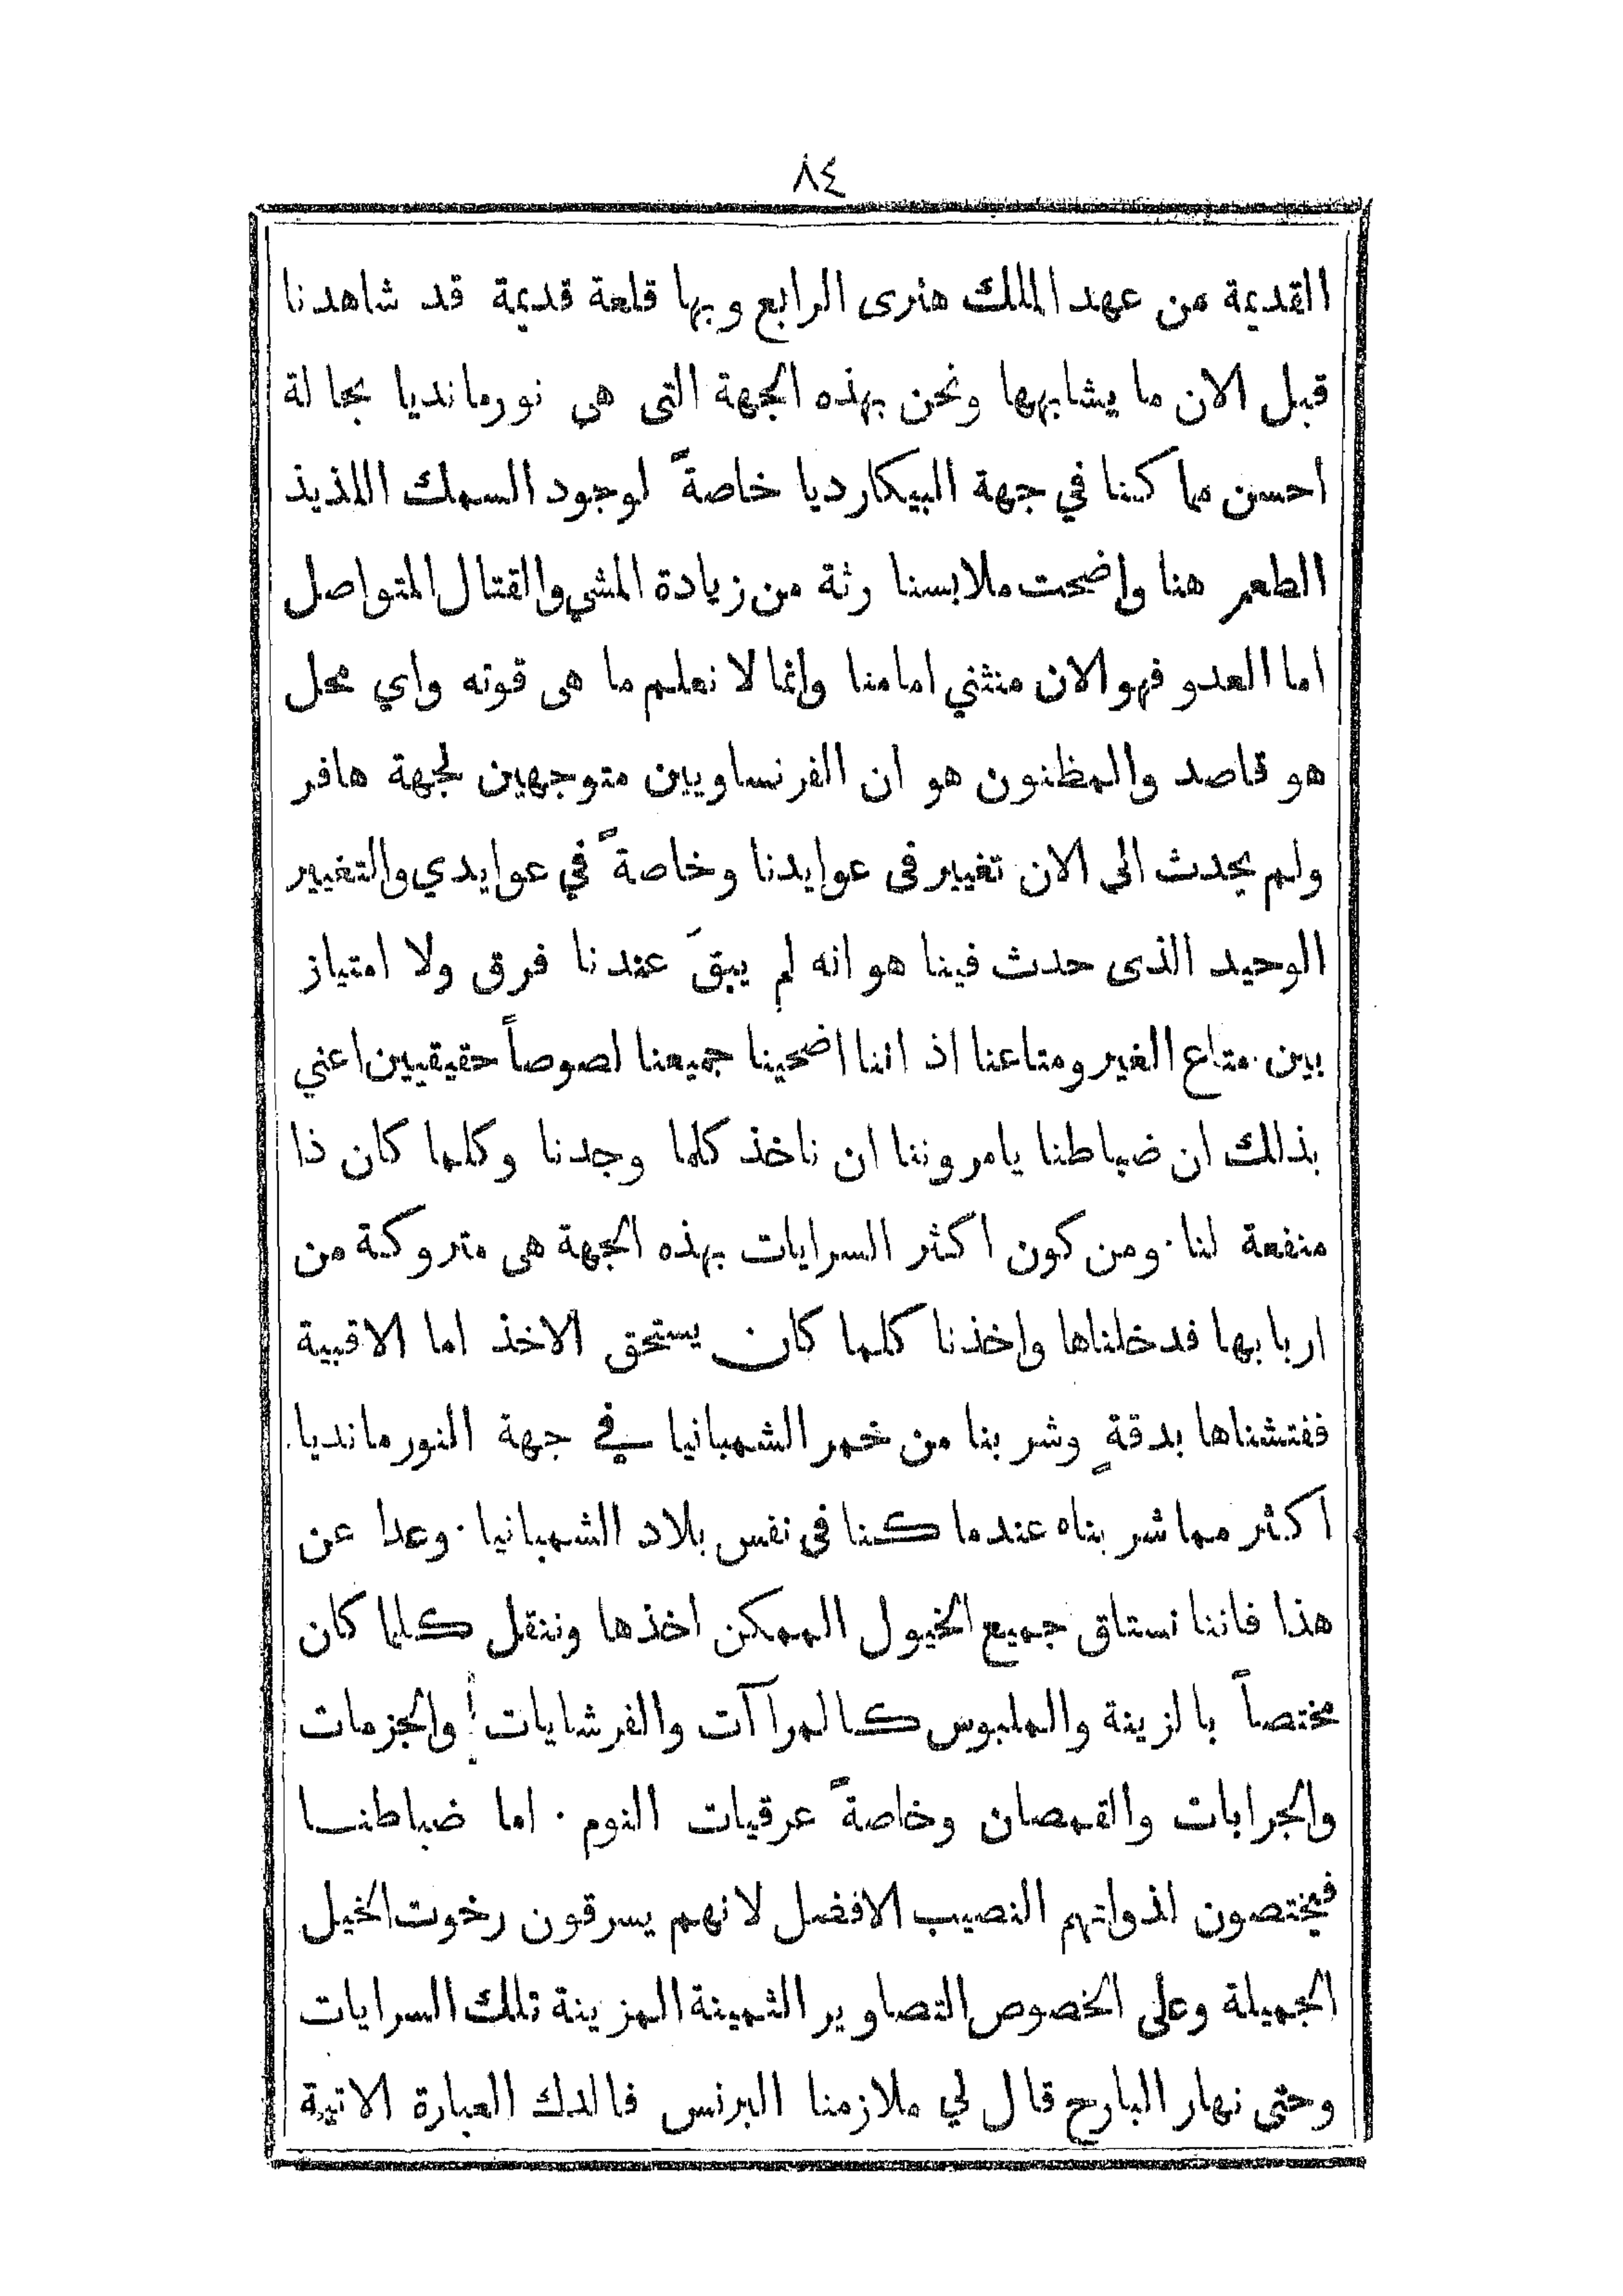 ٨٤
القديمة من عهد الملك هنرى الرابع وبها قلعة قديمة قد شاهدنا
قبل الان ما يشابهها ونحن بهذه الجهة التى هى نورمانديا بحالة
احسن مما كنا في جهة البيكارديا خاصةً لوجود السمك اللذيذ
الطعم هنا واضحت ملابسنا رثة من زيادة المشي والقتال المتواصل
اما العدو فهو الان منثني امامنا وانما لا نعلم ما هى قوته واي محل
هو قاصد والمظنون هو ان الفرنساويين متوجهين لجهة هافر
ولم يحدث الى الان تغيير فى عوايدنا وخاصةً في عوايدي والتغيير
الوحيد الذى حدث فينا هو انه لم يبقَ عندنا فرق ولا امتياز
بين متاع الغير ومتاعنا اذ اننا اضحينا جميعنا لصوصاً حقيقيين اعني
بذلك ان ضباطنا يامروننا ان ناخذ كلما وجدنا وكلما كان ذا
منفعة لنا٠ ومن كون اكثر السرايات بهذه الجهة هى متروكة من
اربابها فدخلناها واخذنا كلما كان يستحق الاخذ اما الاقبية
ففتشناها بدقةٍ وشربنا من خمر الشمبانيا في جهة النورمانديا
اكثر مما شربناه عندما كنا فى نفس بلاد الشمبانيا٠ وعدا عن
هذا فاننا نستاق جميع الخيول الممكن اخذها وننقل كلما كان
مختصاً بالزينة والملبوس كالمراآت والفرشايات والجزمات
والجرابات والقمصان وخاصةً عرقيات النوم٠ اما ضباطنا
فيختصون لذواتهم النصيب الافضل لانهم يسرقون رخوت الخيل
الجميلة وعلى الخصوص التصاوير الثمينة المزينة تلك السرايات
وحتى نهار البارح قال لي ملازمنا البرنس فالدك العبارة الاتية